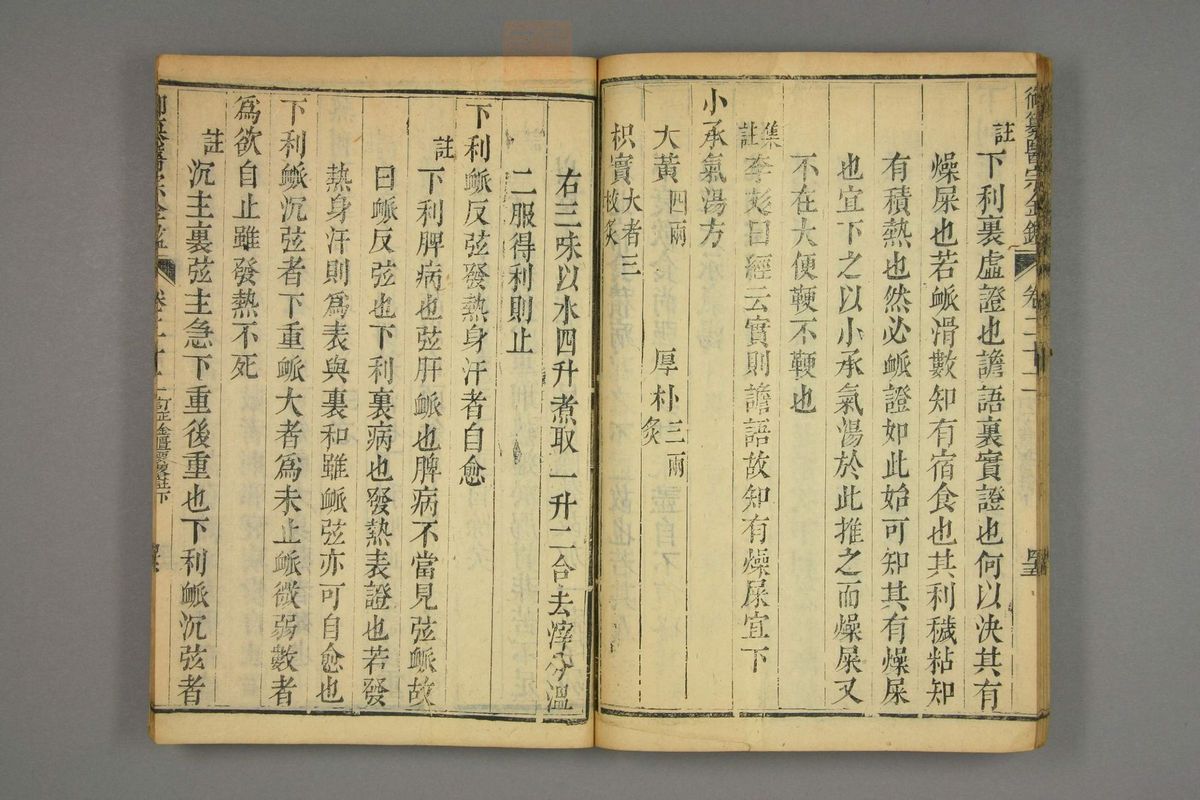 御纂醫宗金鑑 卷二十二
註下利裏虛證也譫語裏實證也何以決其有
燥屎也若衇滑數知有宿食也其利穢粘知
有積熱也然必衇證如此始可知其有燥屎
也宜下之以小承氣湯於此推之而燥屎又
不在大便鞕不鞕也
集註李彣曰經云實則譫語故知有燥屎宜下
小承氣湯方
大黃四兩 厚朴三兩炙
枳實大者三枚炙
右三味以水四升煮取一升二合去滓分溫
二服得利則止
下利衇反弦發熱身汗者自愈
註下利脾病也弦肝衇也脾病不當見弦衇故
曰衇反弦也下利裏病也發熱表證也若發
熱身汗則爲表與裏和雖衇弦亦可自愈也
下利衇沉弦者下重衇大者爲未止衇微弱數者
爲欲自止雖發熱不死
註沉主裏弦主急下重後重也下利衇沉弦者
訂正金匱要畧註下